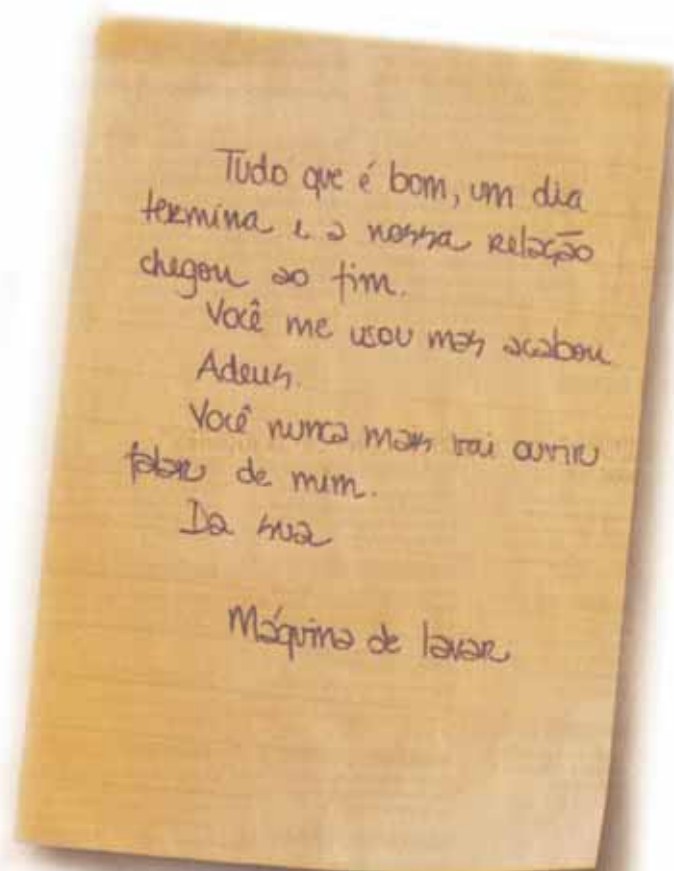 Tudo que é bom, um dia
termina e a nossa relação
chegou ao fim.
Você me usou mas acabou
Adeus.
Você nunca mais vai ouvir
falar de mim.
Da sua
Máquina de lavar